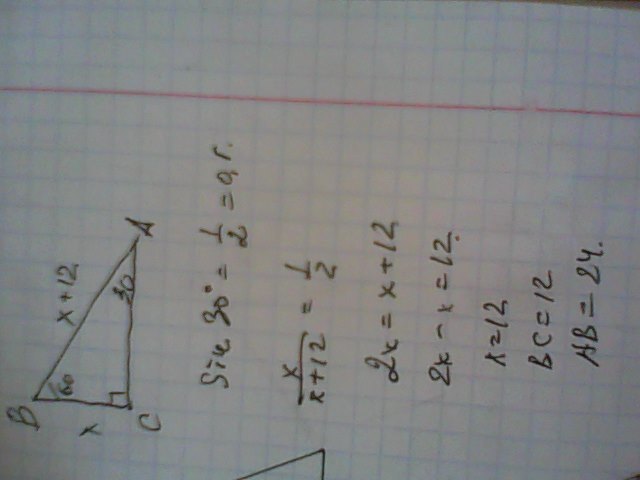 B
60
x
x+12
30
A
C
Sin 30° = 1/2 = 0,5.
x/(x+12) = 1/2
2x = x+12
2x - x = 12.
x=12
BC = 12
AB = 24.